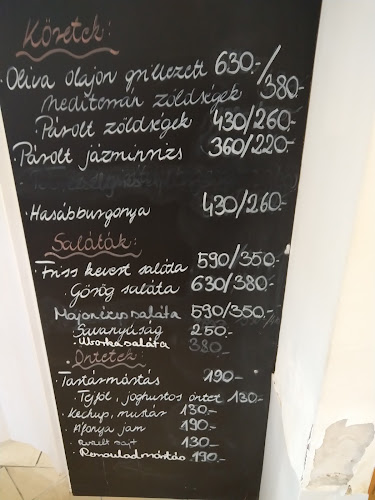 Köretek:
Oliva olajon grillezett 630.-/
mediterrán zöldségek 380.-
Párolt zöldségek 430/260.-
Párolt jázminrizs 360/220.-
Hasábburgonya 430/260.-
Saláták:
Friss kevert saláta 590/350.-
Görög saláta 630/380.-
Majonézes saláta 590/350.-
Savanyúság 250.-
Uborkasaláta 380.-
Öntetek:
Tartármártás 190.-
Tejföl, joghurtos öntet 130.-
Kechup, mustár 130.-
Áfonya jam 190.-
Reszelt sajt 130.-
Remouladmártás 190.-